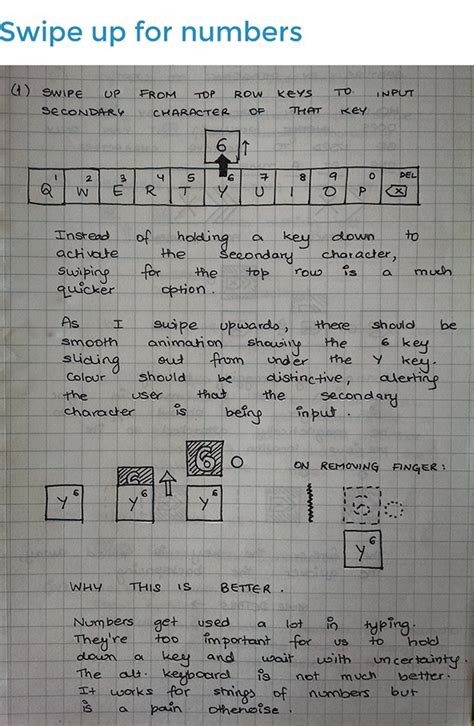 Swipe up for numbers
(1) SWIPE UP FROM TOP ROW KEYS TO INPUT
SECONDARY CHARACTER OF THAT KEY
6
1 2 3 4 5 6 7 8 9 0 DEL
Q W E R T Y U I O P X
Instead of holding a key down to
activate the secondary character,
swiping for the top row is a much
quicker option.
As I swipe upwards, there should be
smooth animation showing the 6 key
sliding out from under the Y key.
Colour should be distinctive, alerting
the user that the secondary
character is being input.
6
6
ON REMOVING FINGER:
6
Y 6
Y 6
Y 6
Y 6
WHY THIS IS BETTER.
Numbers get used a lot in typing.
They're too important for us to hold
down a key and wait with uncertainty.
The alt. keyboard is not much better.
It works for strings of numbers but
is a pain otherwise.